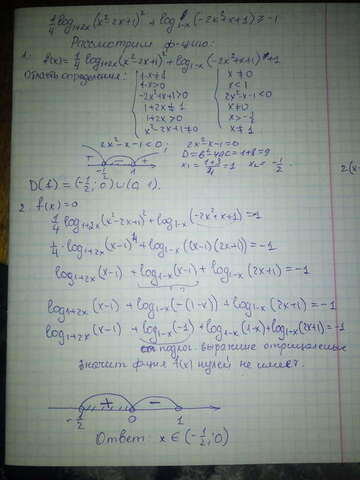 1/4 log₁₊₂ₓ(x²-2x+1)² + log₁₋ₓ(-2x²+x+1) ≥ -1
Рассмотрим ф-цию:
1. f(x) = 1/4 log₁₊₂ₓ(x²-2x+1)² + log₁₋ₓ(-2x²+x+1)+1
Область определения:
1-x≠1
1-x>0
-2x²+x+1>0
1+2x≠1
1+2x>0
x²-2x+1≠0
x≠0
x<1
2x²-x-1<0
x≠0
x>-1/2
x≠1
2x²-x-1<0; 2x²-x-1=0
D=b²-4ac=1+8=9
x₁=(1+3)/4=1 x₂=-1/2.
+ - +
-1/2 1
D(f)=(-1/2; 0)∪(0; 1).
2. f(x)=0
1/4 log₁₊₂ₓ(x²-2x+1)² + log₁₋ₓ(-2x²+x+1)=-1
1/4·log₁₊₂ₓ(x-1)⁴ + log₁₋ₓ((x-1)(2x+1))=-1
log₁₊₂ₓ(x-1) + log₁₋ₓ(x-1) + log₁₋ₓ(2x+1)=-1
log₁₊₂ₓ(x-1) + log₁₋ₓ(-(1-x)) + log₁₋ₓ(2x+1)=-1
log₁₊₂ₓ(x-1) + log₁₋ₓ(-1) + log₁₋ₓ(1-x) + log₁₋ₓ(2x+1)=-1
подлог. выражние отрицательно
значит ф-ция f(x) нулей не имеет.
+ -
-1/2 0 1
Ответ: x∈(-1/2; 0)